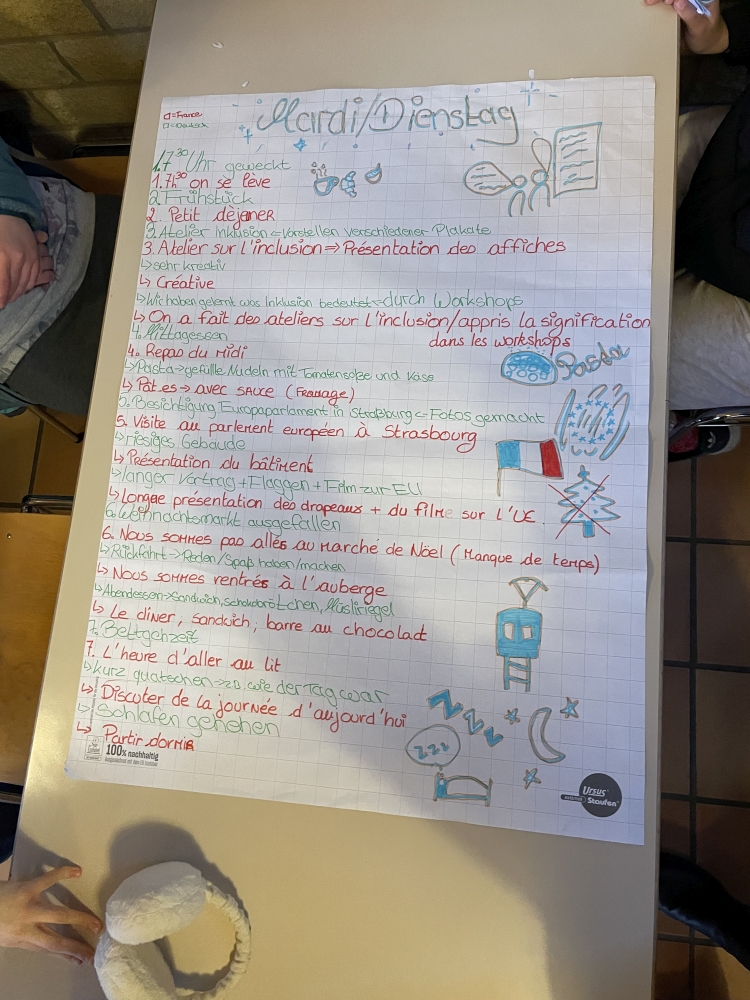 Mardi/Dienstag
□=France
□=Deutsch
1.7³⁰ Uhr geweckt
1.7h³⁰ on se lève
2. Frühstück
2. Petit dèjeuner
3. Atelier Inklusion ⇒ Vorstellen verschiedener Plakate
3. Atelier sur l'inclusion ⇒ Présentation des affiches
↳ sehr kreativ
↳ Créative
↳ Wir haben gelernt was Inklusion bedeutet → durch Workshops
↳ On a fait des ateliers sur l'inclusion/appris la signification
dans les workshops
4. Mittagessen
4. Repas du Midi
↳ Pasta → gefüllte Nudeln mit Tomatensoße und Käse
Pasta
↳ Pâtes → avec sauce (Fromage)
5. Besichtigung Europaparlament in Straßburg ⇒ Fotos gemacht
5. Visite au parlement européen à Strasbourg
↳ riesiges Gebäude
↳ Présentation du bâtiment
↳ langer Vortrag + Flaggen + Film zur EU
↳ Longue présentation des drapeaux + du film sur l'UE.
6. Weihnachtsmarkt ausgefallen
6. Nous sommes pas allés au marché de Nöel (Manque de temps)
↳ Rückfahrt → Reden/Spaß haben/machen
↳ Nous sommes rentrés à l'auberge
↳ Abendessen → Sandwich, Müsliriegel
↳ Le diner, sandwich, barre au chocolat
7. Bettgehzeit
7. L'heure d'aller au lit
↳ kurz quatschen → z.B. wie der Tag war
↳ Discuter de la journée d'aujourd'hui
↳ Schlafen gehehen
↳ Partir dormir
ZZZZ
zzz
100% nachhaltig
Ursus
Staufen